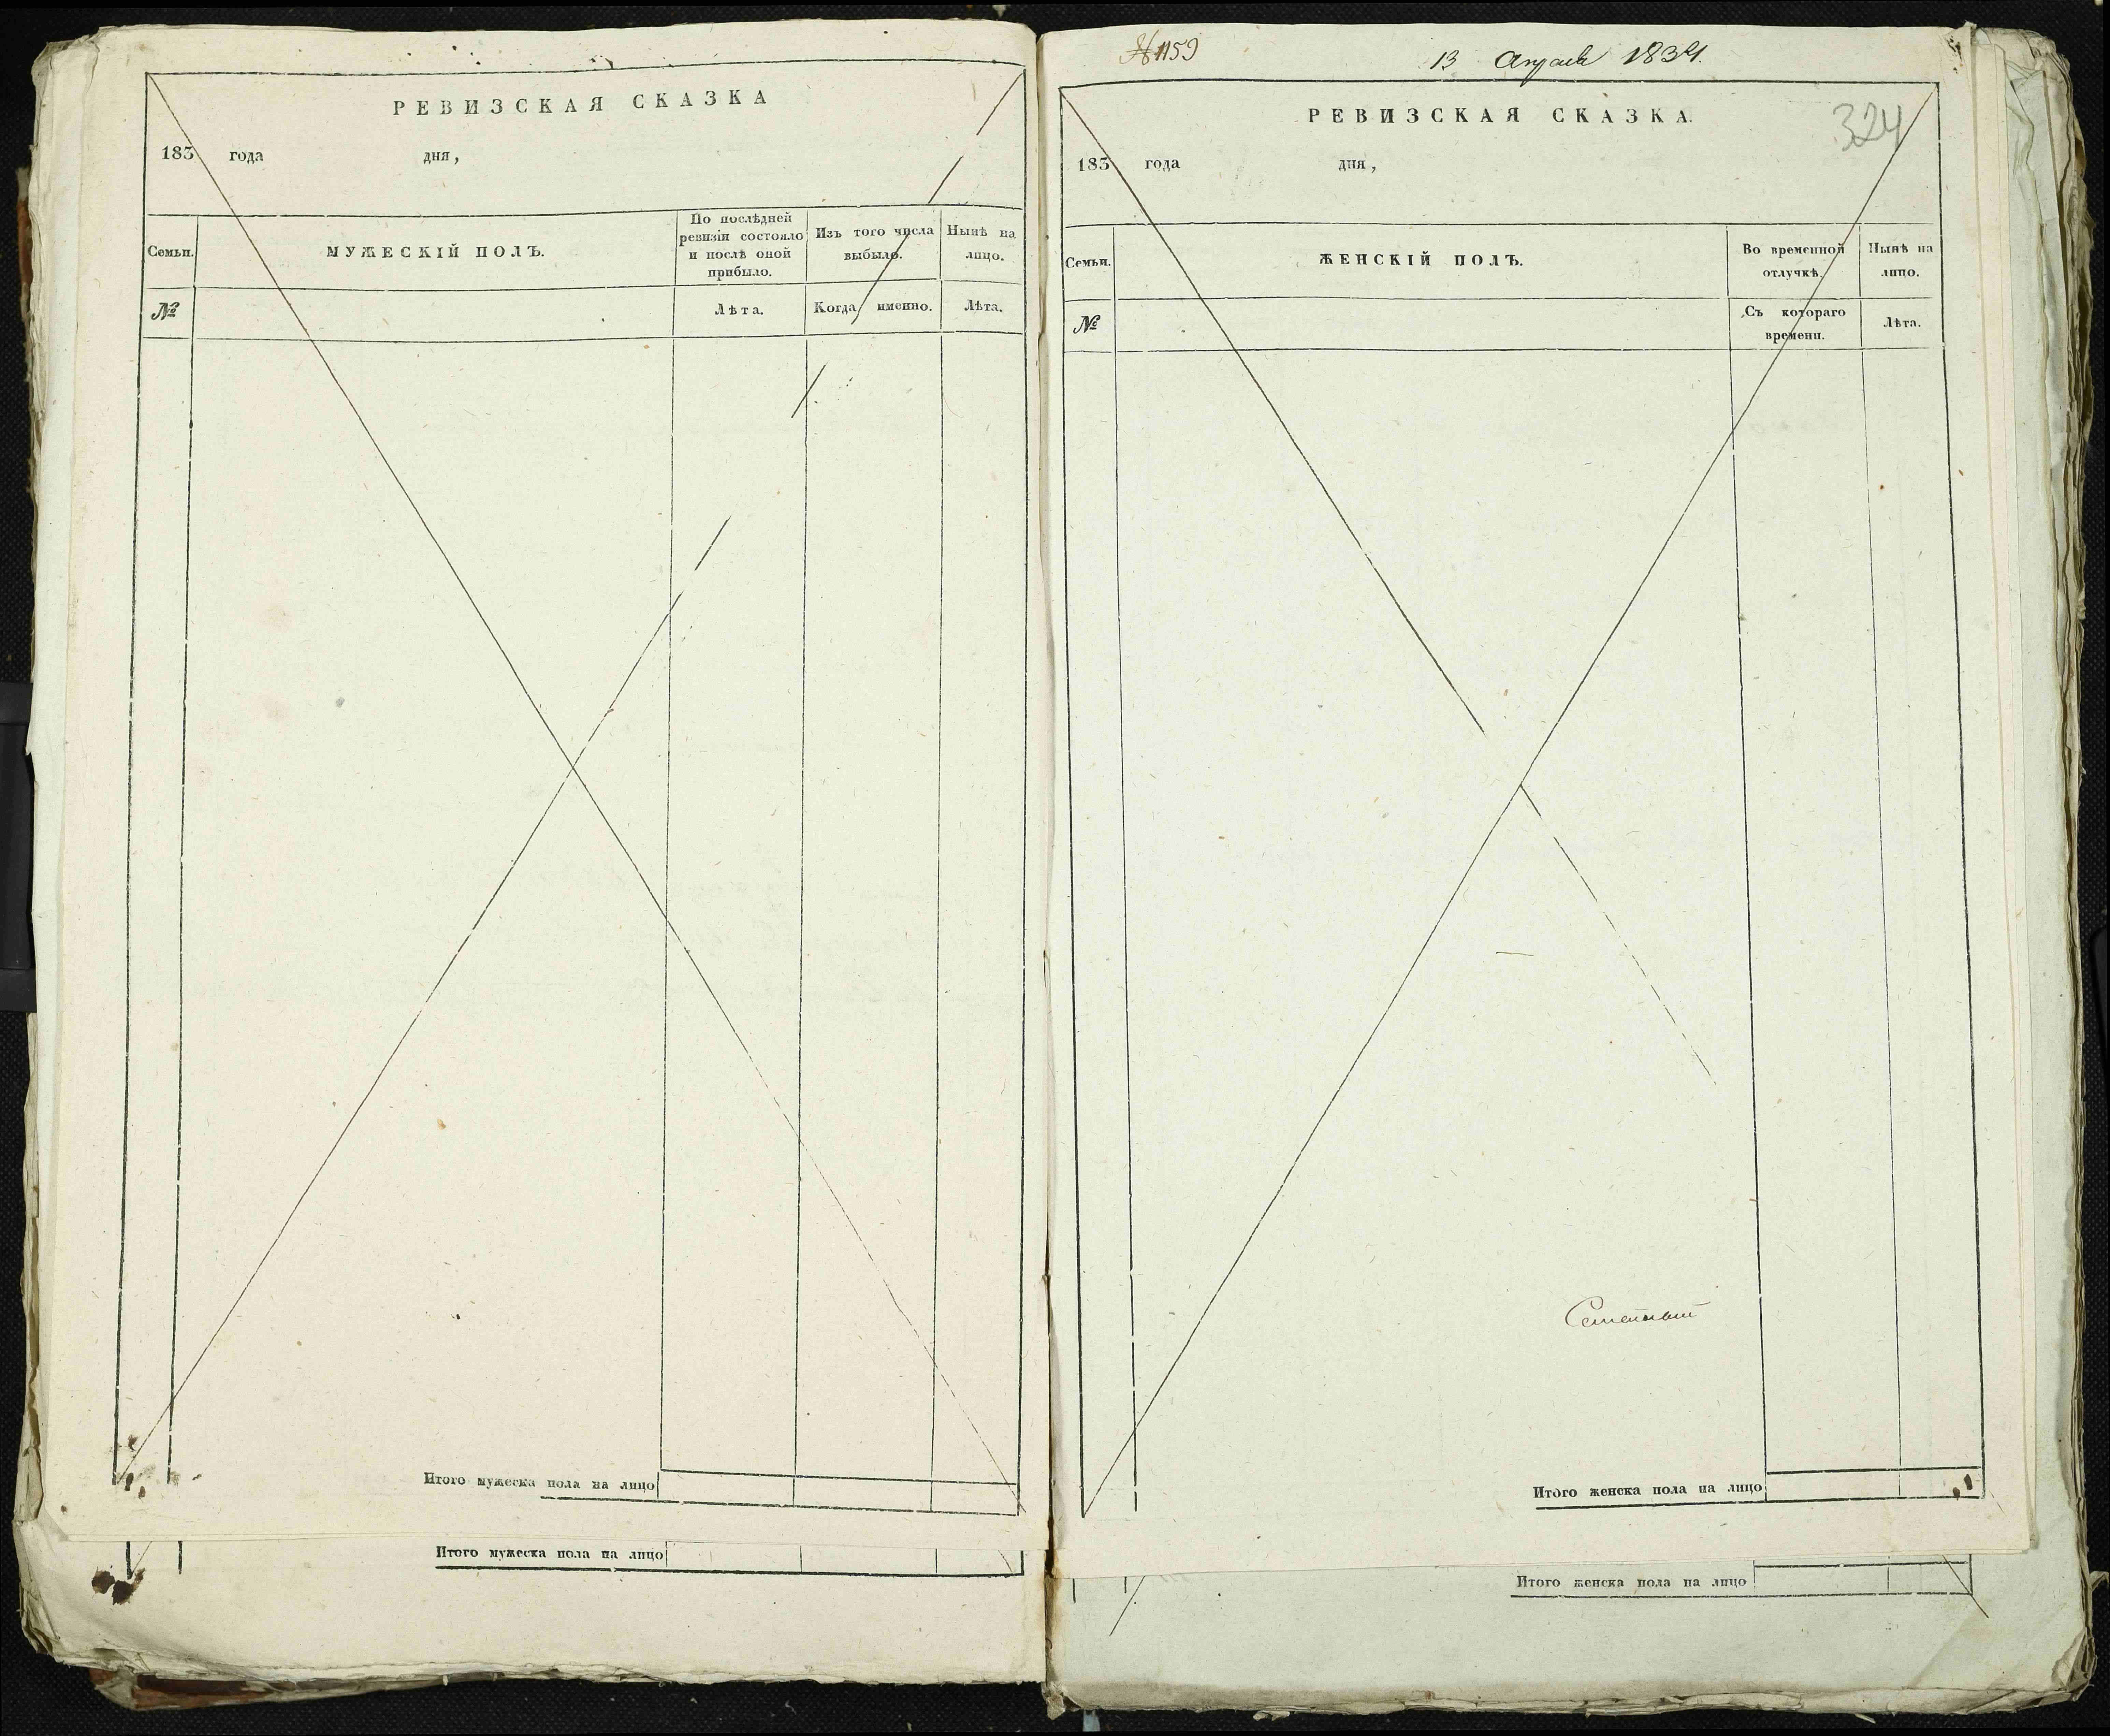 РЕВИЗСКАЯ СКАЗКА
183 года дня,
Семьи.
МУЖЕСКІЙ ПОЛЪ.
По послѣдней ревизіи состояло и послѣ оной прибыло.
Изъ того числа выбыло.
Нынѣ на лицо.
№
Лѣта.
Когда именно.
Лѣта.
Итого мужеска пола на лицо
Итого мужеска пола на лицо
№ 1159
13 Апреля 1834.
РЕВИЗСКАЯ СКАЗКА.
324
183 года дня,
Семьи.
ЖЕНСКІЙ ПОЛЪ.
Во временной отлучкѣ.
Нынѣ на лицо.
№
Съ котораго времени.
Лѣта.
Итого женска пола на лицо
Итого женска пола на лицо